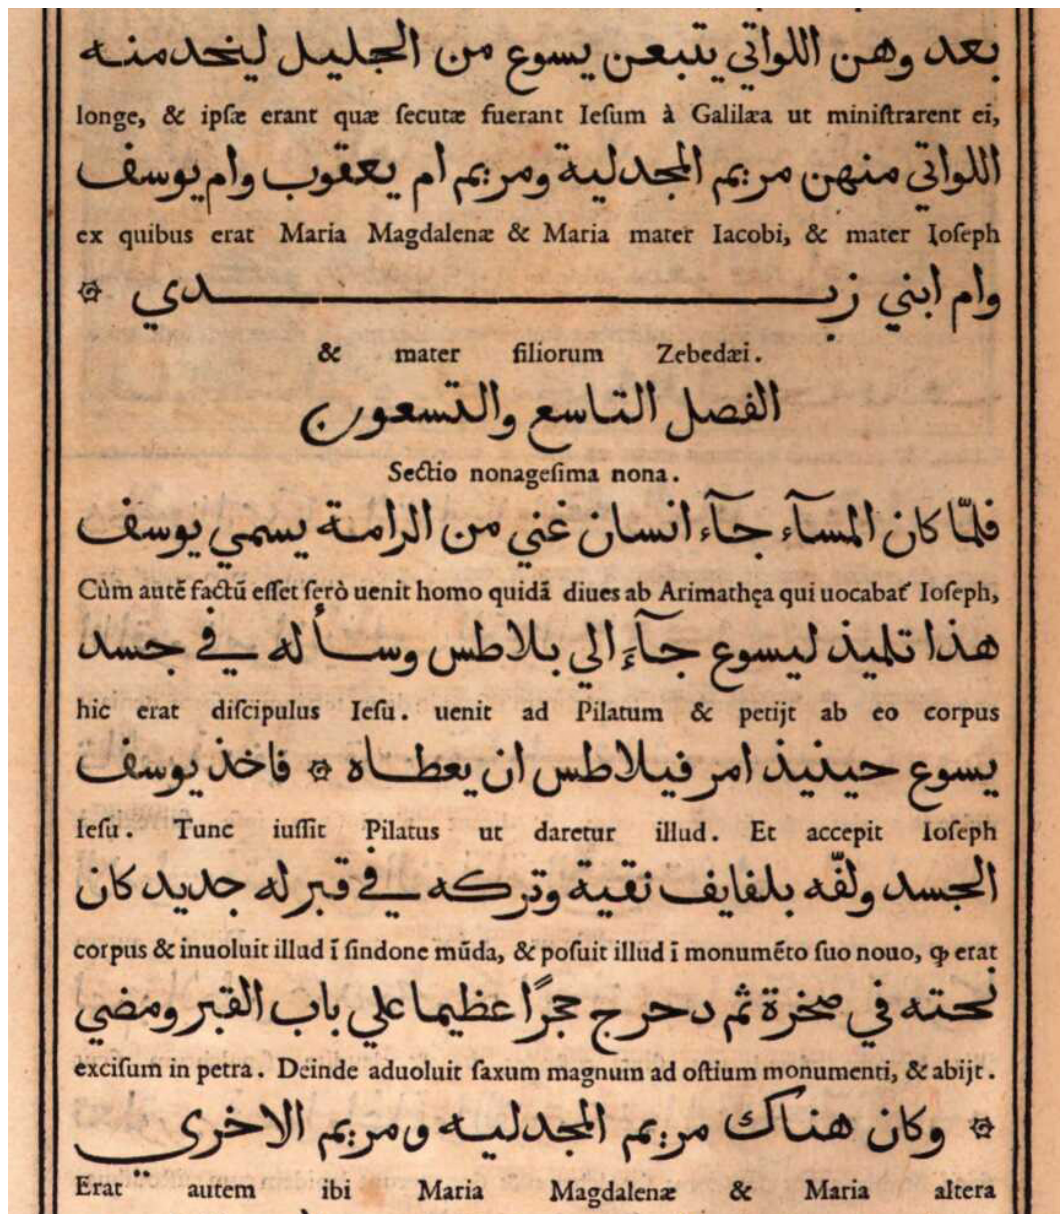 بعد وهن اللواتي يتبعن يسوع من الجليل ليخدمنه
longe, & ipſæ erant quæ ſecutæ fuerant Ieſum à Galilæa ut miniſtrarent ei,
اللواتي منهن مريم المجدلية ومريم ام يعقوب وام يوسف
ex quibus erat Maria Magdalenæ & Maria mater Iacobi, & mater Ioſeph
وام ابني زبـــــــدي ۞
& mater filiorum Zebedæi.
الفصل التاسع والتسعون
Sectio nonageſima nona.
فلمّا كان المسآء جآء انسان غني من الرامة يسمي يوسف
Cùm autē factū eſſet ſerò uenit homo quidā diues ab Arimathęa qui uocabat᷑ Ioſeph,
هذا تلميذ ليسوع جآءَ الي بلاطس وسأله في جسد
hic erat diſcipulus Ieſu. uenit ad Pilatum & petijt ab eo corpus
يسوع حينيذ امر فيلاطس ان يعطاه ۞ فاخذ يوسف
Ieſu. Tunc iuſſit Pilatus ut daretur illud. Et accepit Ioſeph
الجسد ولفّه بلفايف نقية وتركه في قبر له جديد كان
corpus & inuoluit illud ī ſindone mūda, & poſuit illud ī monumēto ſuo nouo, ꝙ erat
نحته في صخرة ثم دحرج حجرًا عظيما علي باب القبر ومضي
exciſum in petra. Deinde aduoluit ſaxum magnum ad oſtium monumenti, & abijt.
۞ وكان هناك مريم المجدليه ومريم الاخري
Erat autem ibi Maria Magdalenæ & Maria altera